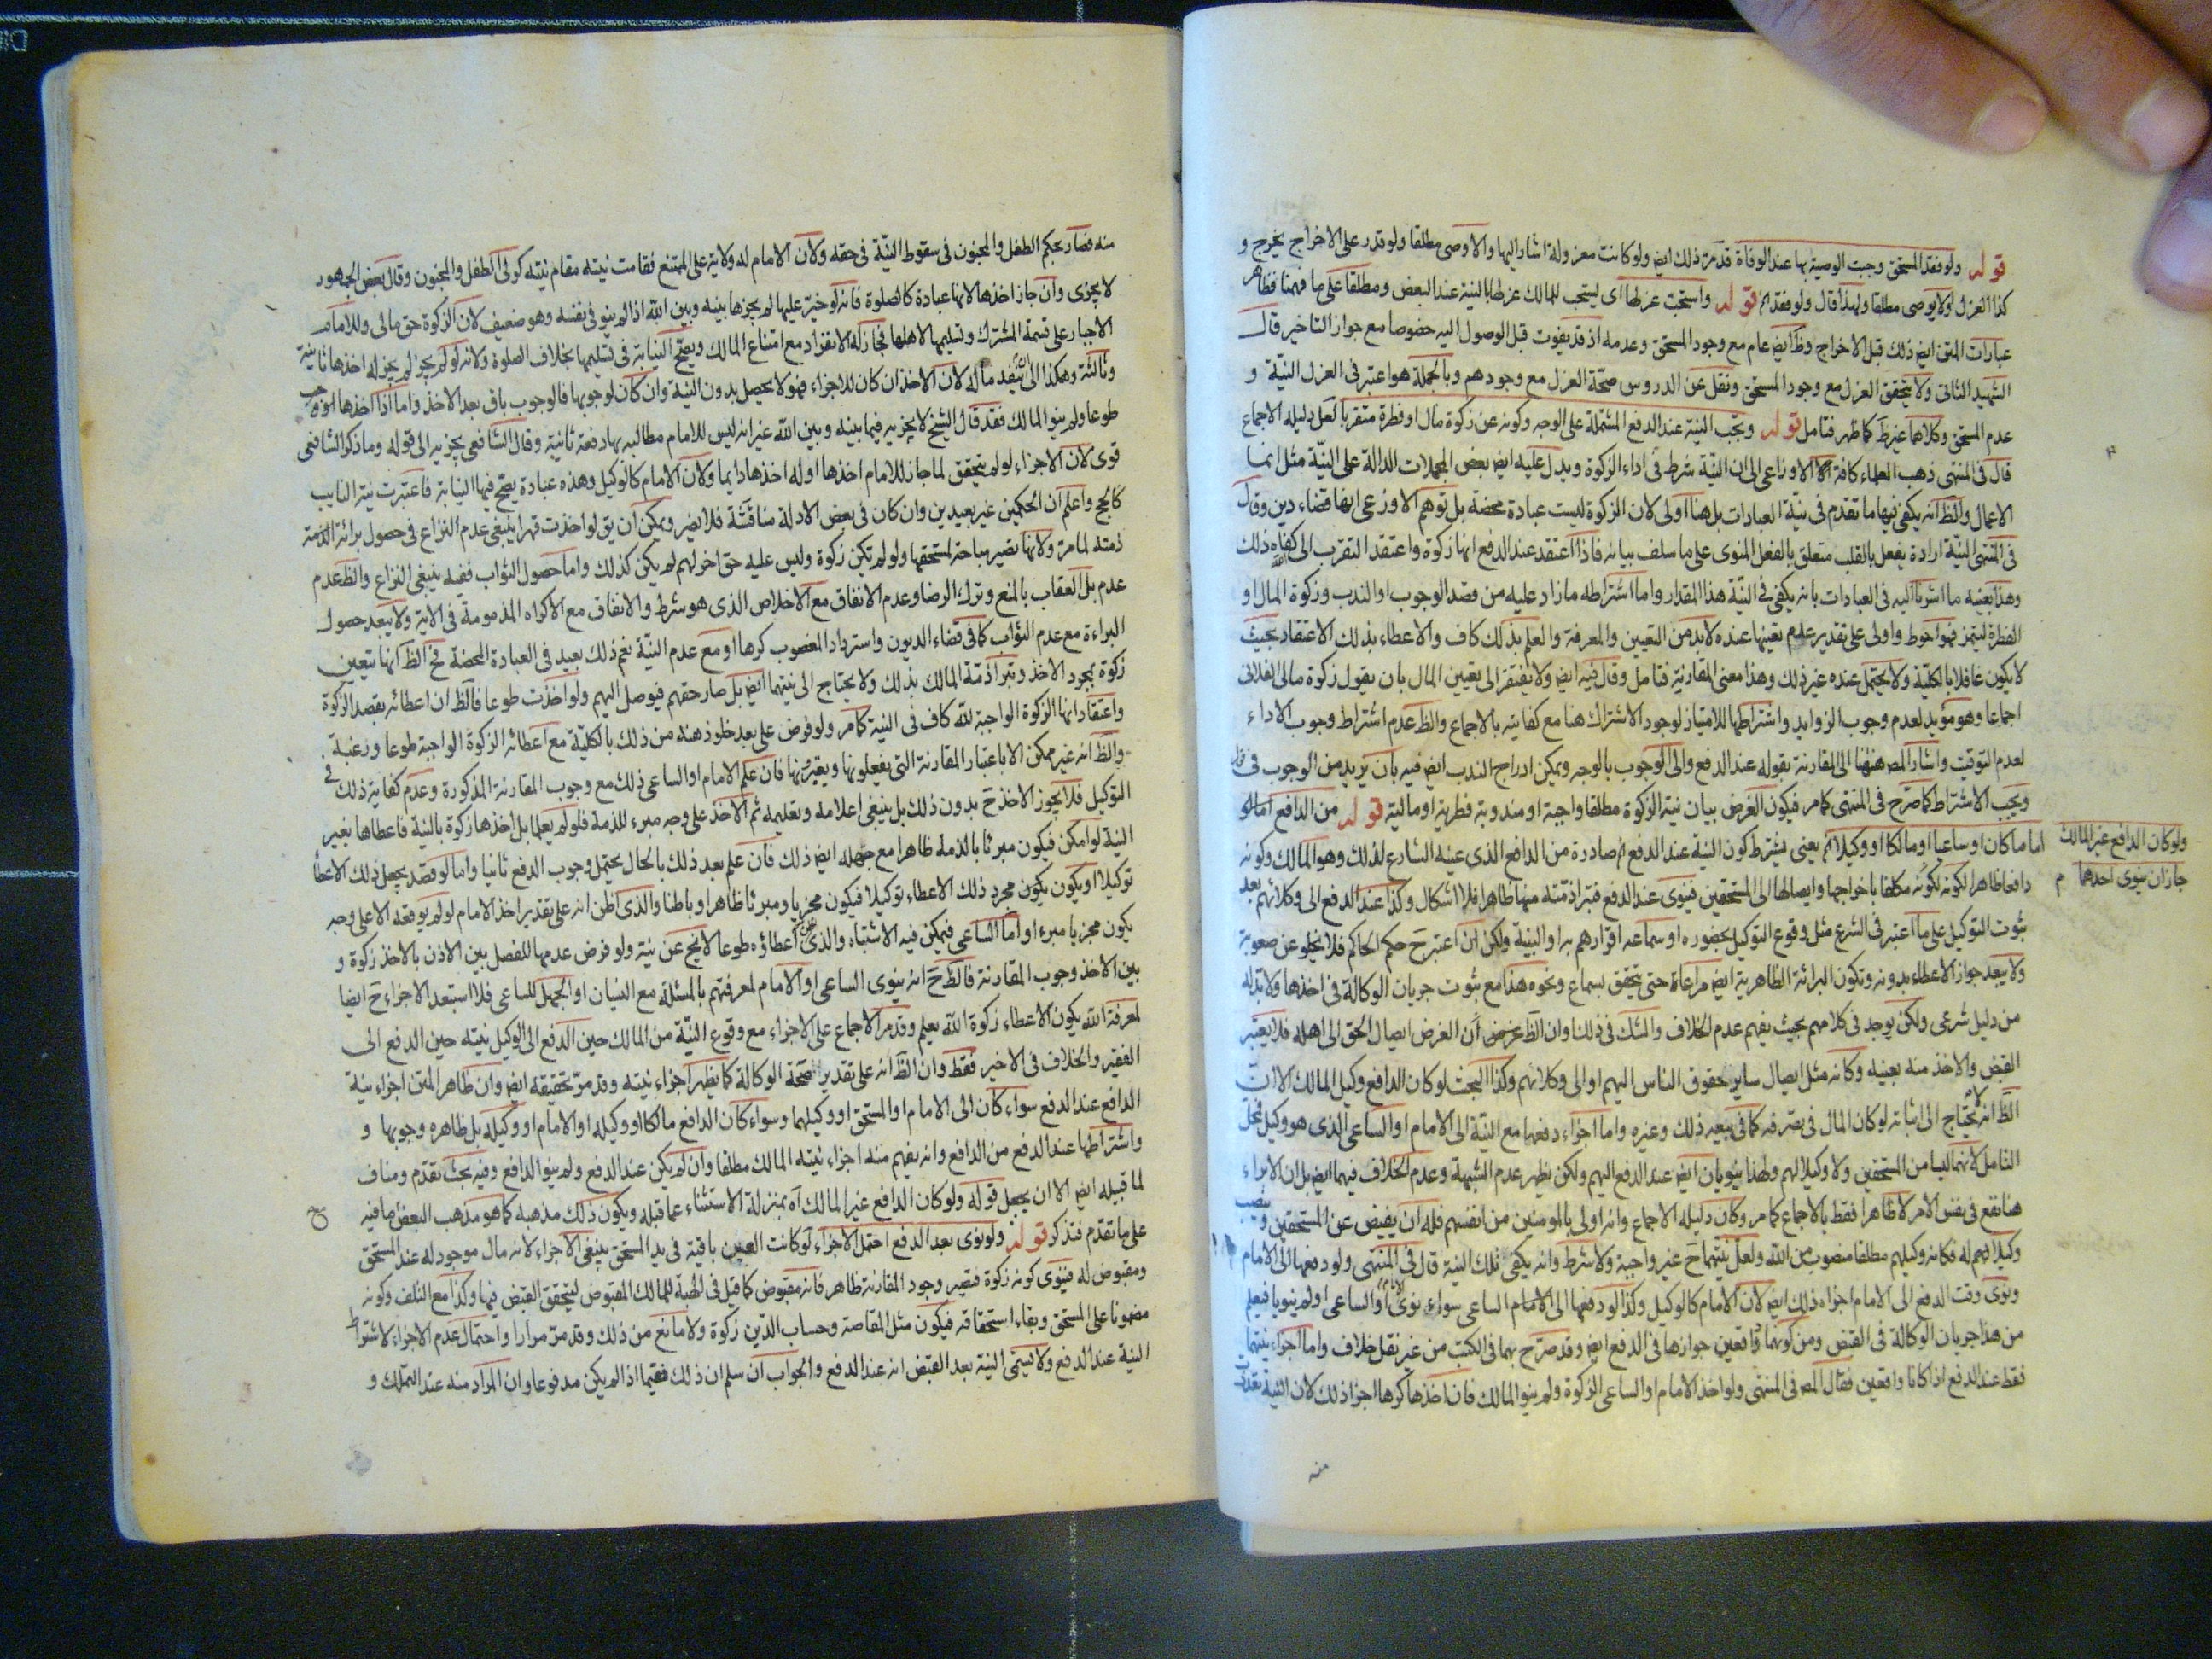 قوله ولو فقد المستحق وجبت الوصية بها عند الوفاة قد مر ذلك ايض ولو كانت معزولة اشار اليها والا وصى مطلقا ولو قدر على الاخراج يخرج و
كذا العزل ولا يوصى مطلقا ولهذا قال ولو فقد قوله واستحب عزلها اى يستحب للمالك عزلها بالنية عند البعض ومطلقا على ما فهمنا فظاهر
عبارات المتن ايض ذلك قبل الاخراج وظ ايض عام مع وجود المستحق وعدمه اذ قد يفوت قبل الوصول اليه خصوصا مع جواز التاخير قال
الشهيد الثانى ولا يتحقق العزل مع وجود المستحق ونقل عن الدروس صحة العزل مع وجودهم وبالجملة هو اعتبر فى العزل النية و
عدم المستحق وكلاهما غير ظ كما ظهر فتامل قوله ويجب النية عند الدفع المشتملة على الوجه وكونه عن زكوة مال او فطرة متقربا لعل دليله الاجماع
قال فى المنتهى ذهب العلماء كافة الا الاوزاعى الى ان النية شرط فى اداء الزكوة ويدل عليه ايض بعض المجملات الدالة على النية مثل انما
الاعمال والظ انه يكفى فيها ما تقدم فى نية العبادات بل هنا اولى لان الزكوة ليست عبادة محضة بل توهم الاوزعى انها قضاء دين وقال
فى المنتهى النية ارادة يفعل بالقلب متعلق بالفعل المنوى على ما سلف بيانه فاذا اعتقد عند الدفع انها زكوة واعتقد التقرب الى الله كفاه ذلك
وهذا بعينه ما اشرنا اليه فى العبادات بانه يكفى فى النية هذا المقدار واما اشتراطه ما زاد عليه من قصد الوجوب او الندب وزكوة المال او
الفطرة ليتميز فهو احوط واولى على تقدير عدم تعينها عنده لابد من التعيين والمعرفة والعلم بذلك كاف والاعطاء بذلك الاعتقاد بحيث
لا يكون غافلا بالكلية ولا يحتمل عنده غير ذلك وهذا معنى المقارنة فتامل وقال فيه ايض ولا يفتقر الى تعيين المال بان يقول زكوة مالى الفلانى
اجماعا وهو مؤيد لعدم وجوب الزوايد واشتراطها للامتياز لوجود الاشتراك هنا مع كفايته بالاجماع والظ عدم اشتراط وجوب الاداء
لعدم التوقيت واشار المص هنا الى المقارنة بقوله عند الدفع والى الوجوب بالوجه ويمكن ادراج الندب ايض فيه بان يريد من الوجوب فى
ويجب الاشتراط كما صرح فى المنتهى كما مر فيكون الغرض بيان نية الزكوة مطلقا واجبة او مندوبة فطرية او مالية قوله من الدافع
اماما كان او ساعيا او مالكا او وكيلا يعنى يشترط كون النية عند الدفع صادرة من الدافع الذى عينه الشارع لذلك وهو المالك وكونه
ولو كان الدافع غير المالك
جاز ان ينوى احدهما م
دافعا ظاهرا لكونه مكلفا باخراجها وايصالها الى المستحقين فينوى عند الدفع فتبرا ذمته منها ظاهرا فلا اشكال وكذا عند الدفع الى وكلائهم بعد
ثبوت التوكيل على ما اعتبر فى الشرع مثل وقوع التوكيل بحضوره او سماعه اقرارهم به او البينة ولكن ان اعتبر ح حكم الحاكم فلا يخلو عن صعوبة
ولا يبعد جواز الاعطاء بدونه وتكون البرائة الظاهرية ايض مراعاة حتى يتحقق بسماع ونحوه هذا مع ثبوت جريان الوكالة فى اخذها ولا بد له
من دليل شرعى ولكن يوجد فى كلامهم بحيث يفهم عدم الخلاف والشك فى ذلك وان الظ ان الغرض ايصال الحق الى اهله فلا يعتبر
القبض والاخذ منه بعينه وكانه مثل ايصال ساير حقوق الناس اليهم او الى وكلائهم وكذا البحث لو كان الدافع وكيل المالك الا ان
الظ انه لا يحتاج الى اثباته لو كان المال فى تصرفه كما فى بيعه ذلك وغيره واما اجزاء دفعها مع النية الى الامام او الساعى الذى هو وكيل فمحل
التامل لانهما ليسا من المستحقين ولا وكيلا لهم ولهذا ينويان ايض عند الدفع اليهم ولكن يظهر عدم الشبهة وعدم الخلاف فيهما ايض بل ان الابراء
هنا تقع فى نفس الامر لا ظاهرا فقط بالاجماع كما مر وكان دليله الاجماع وانه اولى بالمومنين من انفسهم فله ان يقبض عن المستحقين وينصب
وكيلا لهم له فكانه وكيلهم مطلقا منصوب من الله ولعل نيتهما ح غير واجبة ولا شرط وانه يكفى تلك النية قال فى المنتهى ولو دفعها الى الامام
ونوى وقت الدفع الى الامام اجزاء ذلك ايض لان الامام كالوكيل وكذا لو دفعها الى الامام الساعى سواء نوى الامام او الساعى او لم ينويا فيعلم
من هذا جريان الوكالة فى القبض ومن كونهما واقعين جوازها فى الدفع ايض وقد صرح بهما فى الكتب من غير نقل خلاف واما اجزاء نيتهما
فقط عند الدفع اذا كانا واقعين فقال المص فى المنتهى ولو اخذ الامام او الساعى الزكوة ولم ينو المالك فان اخذها كرها اجزا ذلك لان النية تعذرت
منه
منه فصار بحكم الطفل والمجنون فى سقوط النية فى حقه ولان الامام له ولاية على الممتنع فقامت نيته مقام نيته كولى الطفل والمجنون وقال بعض الجمهور
لا يجزى وان جاز اخذها لانها عبادة كالصلوة فانه لو خير عليها لم يجزها بينه وبين الله اذا لم ينو فى نفسه وهو ضعيف لان الزكوة حق مالى وللامام
الاجبار على قسمة المشترك وتسليمها لاهلها فجاز له الانفراد مع امتناع المالك ويصح النيابة فى تسليمها بخلاف الصلوة ولانه لو لم يجز لم يجز له اخذها ثانية
وثالثة وهكذا الى ان ينفد ماله لان الاخذ ان كان للاجزاء فهو لا يحصل بدون النية وان كان لوجوبها فالوجوب باق بعد الاخذ واما اذا اخذها
طوعا ولم ينو المالك فقد قال الشيخ لا يجزيه فيما بينه وبين الله غير انه ليس للامام مطالبه بها دفعة ثانية وقال الشافعى يجزيه الى قوله وما ذكره الشافعى
قوى لان الاجزاء لو لم يتحقق لما جاز للامام اخذها او له اخذها دايما ولان الامام كالوكيل وهذه عبادة يصح فيها النيابة فاعتبرت نية النايب
كالحج واعلم ان الحكمين غير بعيدين وان كان فى بعض الادلة مناقشة فلا يضر ويمكن ان يق لو اخذت قهرا ينبغى عدم النزاع فى حصول برائة الذمة
ذمته لما مر ولانها يصير مباحة لمستحقها ولو لم تكن زكوة وليس عليه حق اخر لهم لم يكن كذلك واما حصول الثواب ففيه ينبغى النزاع والظ عدم
عدم بل العقاب بالمنع وترك الرضا وعدم الانفاق مع الاخلاص الذى هو شرط والانفاق مع الاكراه المذمومة فى الاية ولا يبعد حصول
البراءة مع عدم الثواب كما فى قضاء الديون واسترداد المغصوب كرها او مع عدم النية نعم ذلك بعيد فى العبادة المحضة فح الظ انها تتعين
زكوة بمجرد الاخذ وتبرا ذمة المالك بذلك ولا يحتاج الى نيتهما ايض بل صار حقهم فيوصل اليهم ولو اخذت طوعا فالظ ان اعطائه بقصد الزكوة
واعتقاد انها الزكوة الواجبة لله كاف فى النية كما مر ولو فرض على بعد خلو ذهنه من ذلك بالكلية مع اعطائه الزكوة الواجبة طوعا ورغبة
والظ انه غير ممكن الا باعتبار المقارنة التى يفعلونها ويعتبرونها فان علم الامام او الساعى ذلك مع وجوب المقارنة المذكورة وعدم كفاية ذلك فى
التوكيل فلا يجوز الاخذ ح بدون ذلك بل ينبغى اعلامه وتعليمه ثم الاخذ على وجه مبرء للذمة فلو لم يعلما بل اخذها زكوة بالنية فاعطاها بغير
النية لو امكن فيكون مبرئا بالذمة ظاهرا مع جهله ايض ذلك فان علم بعد ذلك بالحال يحتمل وجوب الدفع ثانيا واما لو قصد بجعل ذلك الاعطاء
توكيلا او يكون مجرد ذلك الاعطاء توكيلا فيكون مجزيا ومبرئا ظاهرا وباطنا والذى اظن انه على تقدير اخذ الامام لو لم يوقعه الا على وجه
يكون مجزيا مبرءا واما الساعى فيمكن فيه الاشتباه والذى اعطاؤه طوعا لا ينج عن نية ولو فرض عدمها للفصل بين الاذن بالاخذ زكوة و
بين الاخذ وجوب المقارنة فالظ ح انه ينوى الساعى او الامام لمعرفتهم بالمسئلة مع النسيان او الجهل للساعى فلا استبعد الاجزاء ح ايضا
لمعرفة الله بكون الاعطاء زكوة الله يعلم وقد مر الاجماع على الاجزاء مع وقوع النية من المالك حين الدفع الى الوكيل نيته حين الدفع الى
الفقير والخلاف فى الاخير فقط وان الظ انه على تقدير صحة الوكالة كما يظهر اجزاء نيته وقد مر تحقيقه ايض وان ظاهر المتن اجزاء نية
الدافع عند الدفع سواء كان الى الامام او المستحق او وكيلهما وسواء كان الدافع مالكا او وكيله او الامام او وكيله بل ظاهره وجوبها و
واشتراطها عند الدفع من الدافع وانه يفهم منه اجزاء نيته المالك مطلقا وان لم يكن عند الدفع ولم ينو الدافع وفيه بحث تقدم ومناف
لما قبله ايض الا ان يجعل قوله ولو كان الدافع غير المالك اه بمنزلة الاستثناء عما قبله ويكون ذلك مذهبه كما هو مذهب البعض ما فيه
على ما تقدم فتذكر قوله ولو نوى بعد الدفع احتمل الاجزاء لو كانت العين باقية فى يد المستحق ينبغى الاجزاء لانه مال موجود له عند المستحق
ومقبوض له فينوى كونه زكوة فتصير وجود المقارنة ظاهر فانه مقبوض كما قيل فى الهبة للمالك المقبوض ليتحقق القبض فيها وكذا مع التلف وكونه
مضمونا على المستحق وبقاء استحقاقه فيكون مثل المقاصة وحساب الدين زكوة ولا مانع من ذلك وقد مر مرارا واحتمال عدم الاجزاء لاشتراط
النية عند الدفع ولا يسمى النية بعد القبض انه عند الدفع والجواب ان سلم ان ذلك فقيما اذا لم يكن مدفوعا وان المراد منه عند التملك و